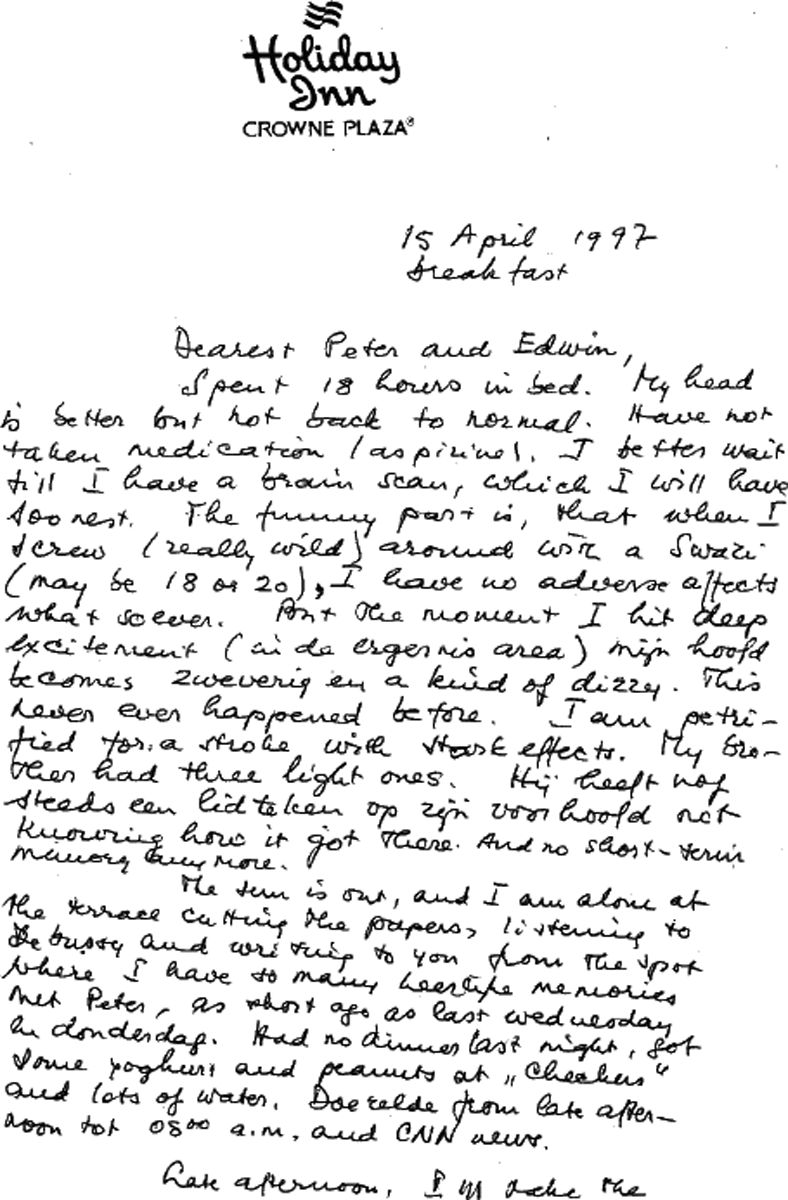 Holiday
Inn
CROWNE PLAZA®
15 April 1997
breakfast
Dearest Peter and Edwin,
Spent 18 hours in bed. My head
is better but not back to normal. Have not
taken medication (aspirine). I better wait
till I have a brain scan, which I will have
soonest. The funny part is, that when I
screw (really wild) around with a Swazi
(may be 18 or 20), I have no adverse affects
what soever. But the moment I hit deep
excitement (in de ergernis area) mijn hoofd
becomes zweverig en a kind of dizzy. This
never ever happened before. I am petri-
fied for a stroke with effects. My bro-
ther had three light ones. Hij heeft nog
steeds een lidteken op zijn voorhoofd not
knowing how it got there. And no short-term
memory any more.
The sun is out, and I am alone at
the terrace cutting the papers, listening to
Debussy and writing to you from the spot
where I have so many heerlijke memories
met Peter, as short ago as last wednesday
en donderdag. Had no dinner last night, got
some yoghurt and peanuts at „Checkers"
and lots of water. from late after-
noon tot 08⁰⁰ a.m. and CNN news.
Late afternoon. I take the